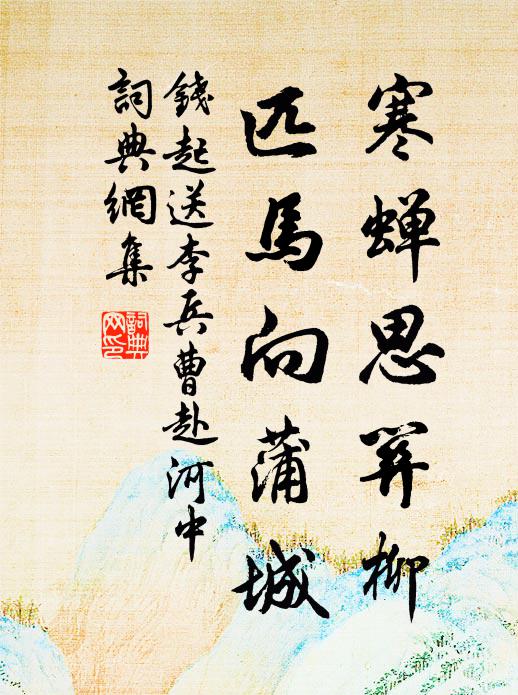 寒蝉思関柳
匹馬向蒲城
錢起送李兵曹赴河中
詞典網集
詞典
网印